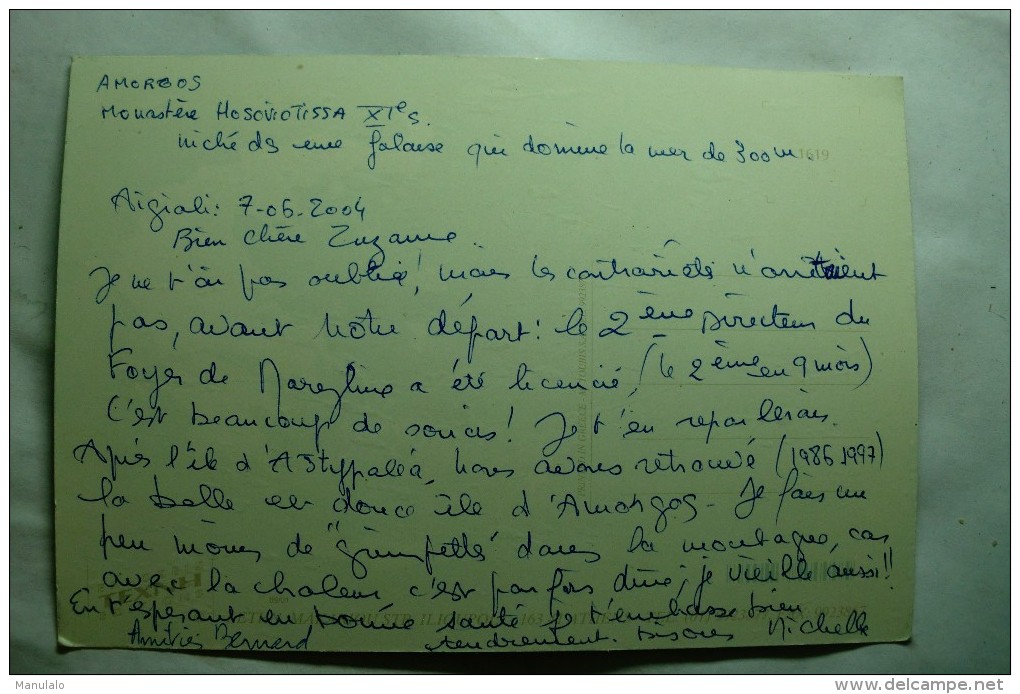 AMORGOS
Monastère HOSOVIOTISSA XIe s.
niché ds une falaise qui domine la mer de 300m.
1619
Aigiali: 7-06-2004
Bien chère Zuzanne.
Je ne t'ai pas oublié! mais les contrariétés n'arrêtaient
pas, avant notre départ: le 2ème Directeur du
Foyer de a été licencié, (le 2ème en 9 mois)
C'est beaucoup de soucis! Je t'en reparlerais.
Après l'île d'Astypaléa, nous avons retrouvé (1986 1997)
la belle et douce île d'Amorgos - Je fais un
peu moins de "grimpette" dans la montagne, car
avec la chaleur c'est parfois dure; je vieille aussi!!
En t'espérant en bonne santé je t'embrasse bien
tendrement. Bisous Michelle
Amitiés Bernard
Manulalo
delcampe.net